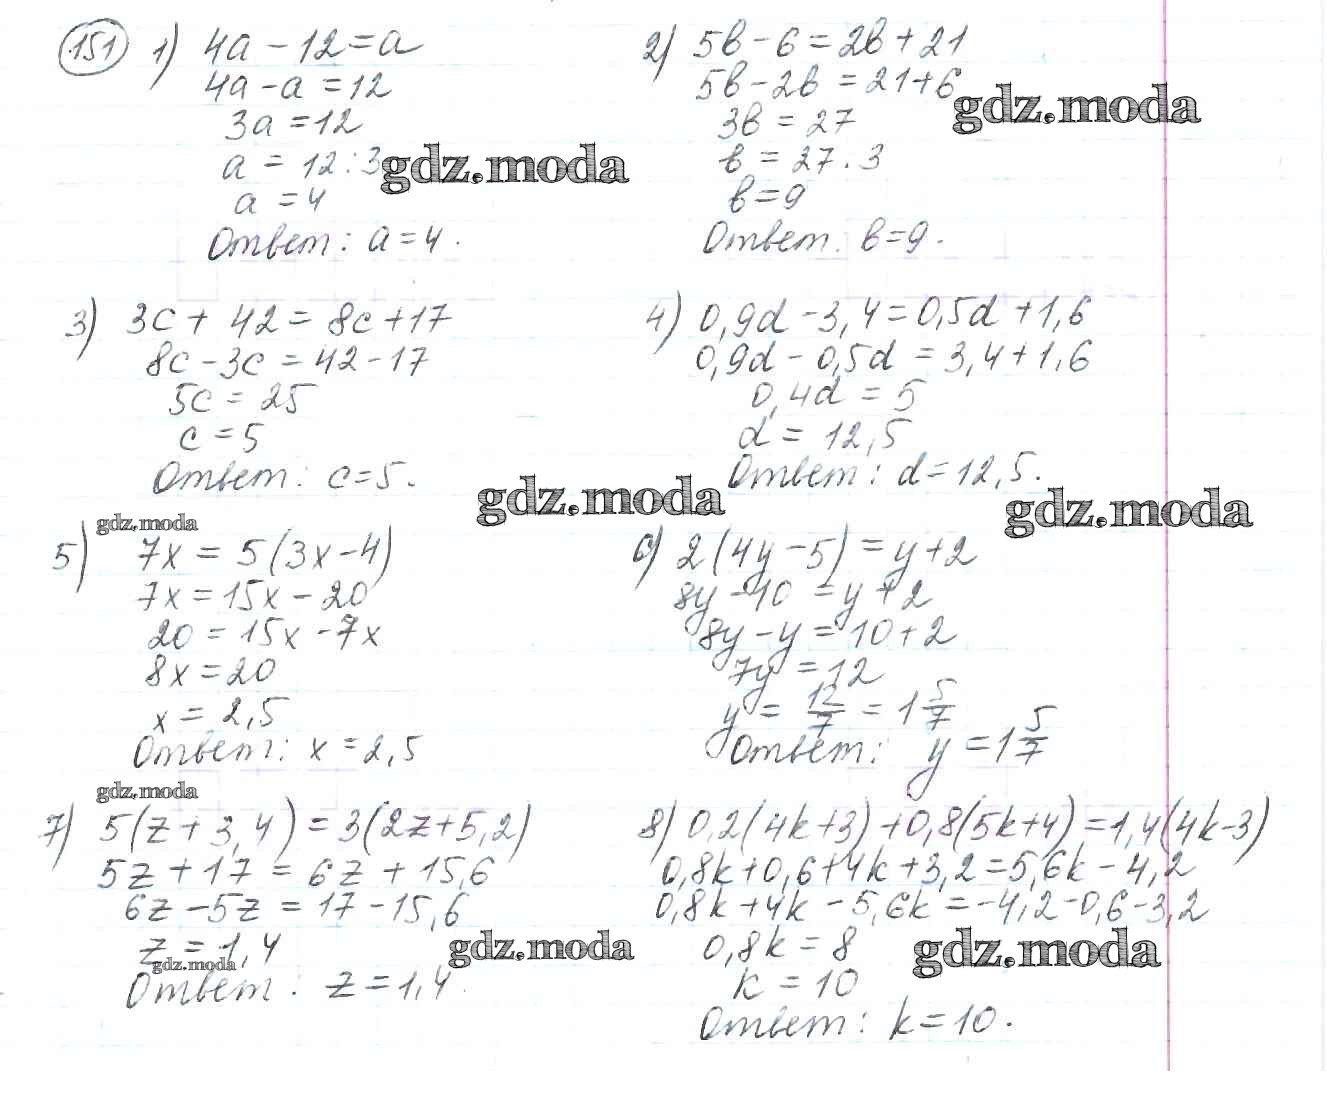 151 1) 4a - 12 = a
4a - a = 12
3a = 12
a = 12 : 3
a = 4
Ответ: a = 4.
2) 5b - 6 = 2b + 21
5b - 2b = 21 + 6
3b = 27
b = 27 . 3
b = 9
Ответ. b = 9.
gdz.moda
gdz.moda
3) 3c + 42 = 8c + 17
8c - 3c = 42 - 17
5c = 25
c = 5
Ответ: c = 5.
4) 0,9d - 3,4 = 0,5d + 1,6
0,9d - 0,5d = 3,4 + 1,6
0,4d = 5
d = 12,5
Ответ: d = 12,5.
gdz.moda
gdz.moda
gdz.moda
5) 7x = 5(3x - 4)
7x = 15x - 20
20 = 15x - 7x
8x = 20
x = 2,5
Ответ: x = 2,5
6) 2(4y - 5) = y + 2
8y - 10 = y + 2
8y - y = 10 + 2
7y = 12
y = 12/7 = 1 5/7
Ответ: y = 1 5/7
gdz.moda
7) 5(z + 3,4) = 3(2z + 5,2)
5z + 17 = 6z + 15,6
6z - 5z = 17 - 15,6
z = 1,4
Ответ: z = 1,4.
8) 0,2(4k+3) + 0,8(5k+4) = 1,4(4k-3)
0,8k + 0,6 + 4k + 3,2 = 5,6k - 4,2
0,8k + 4k - 5,6k = -4,2 - 0,6 - 3,2
0,8k = 8
k = 10
Ответ: k = 10.
gdz.moda
gdz.moda
gdz.moda